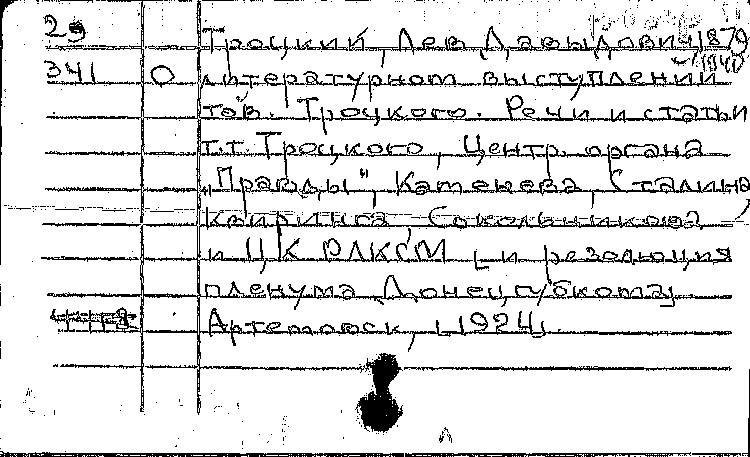 29
Троцкий, Лев Давыдович, 1879
1940
341 О литературном выступлении
тов. Троцкого. Речи и статьи
т.т. Троцкого, Центр. органа
„Правды", Каменева, Сталина,
Квиринга, Сокольникова
и ЦК РЛКСМ [и резолюция
пленума Донецгубкома].
Артемовск, [1924].